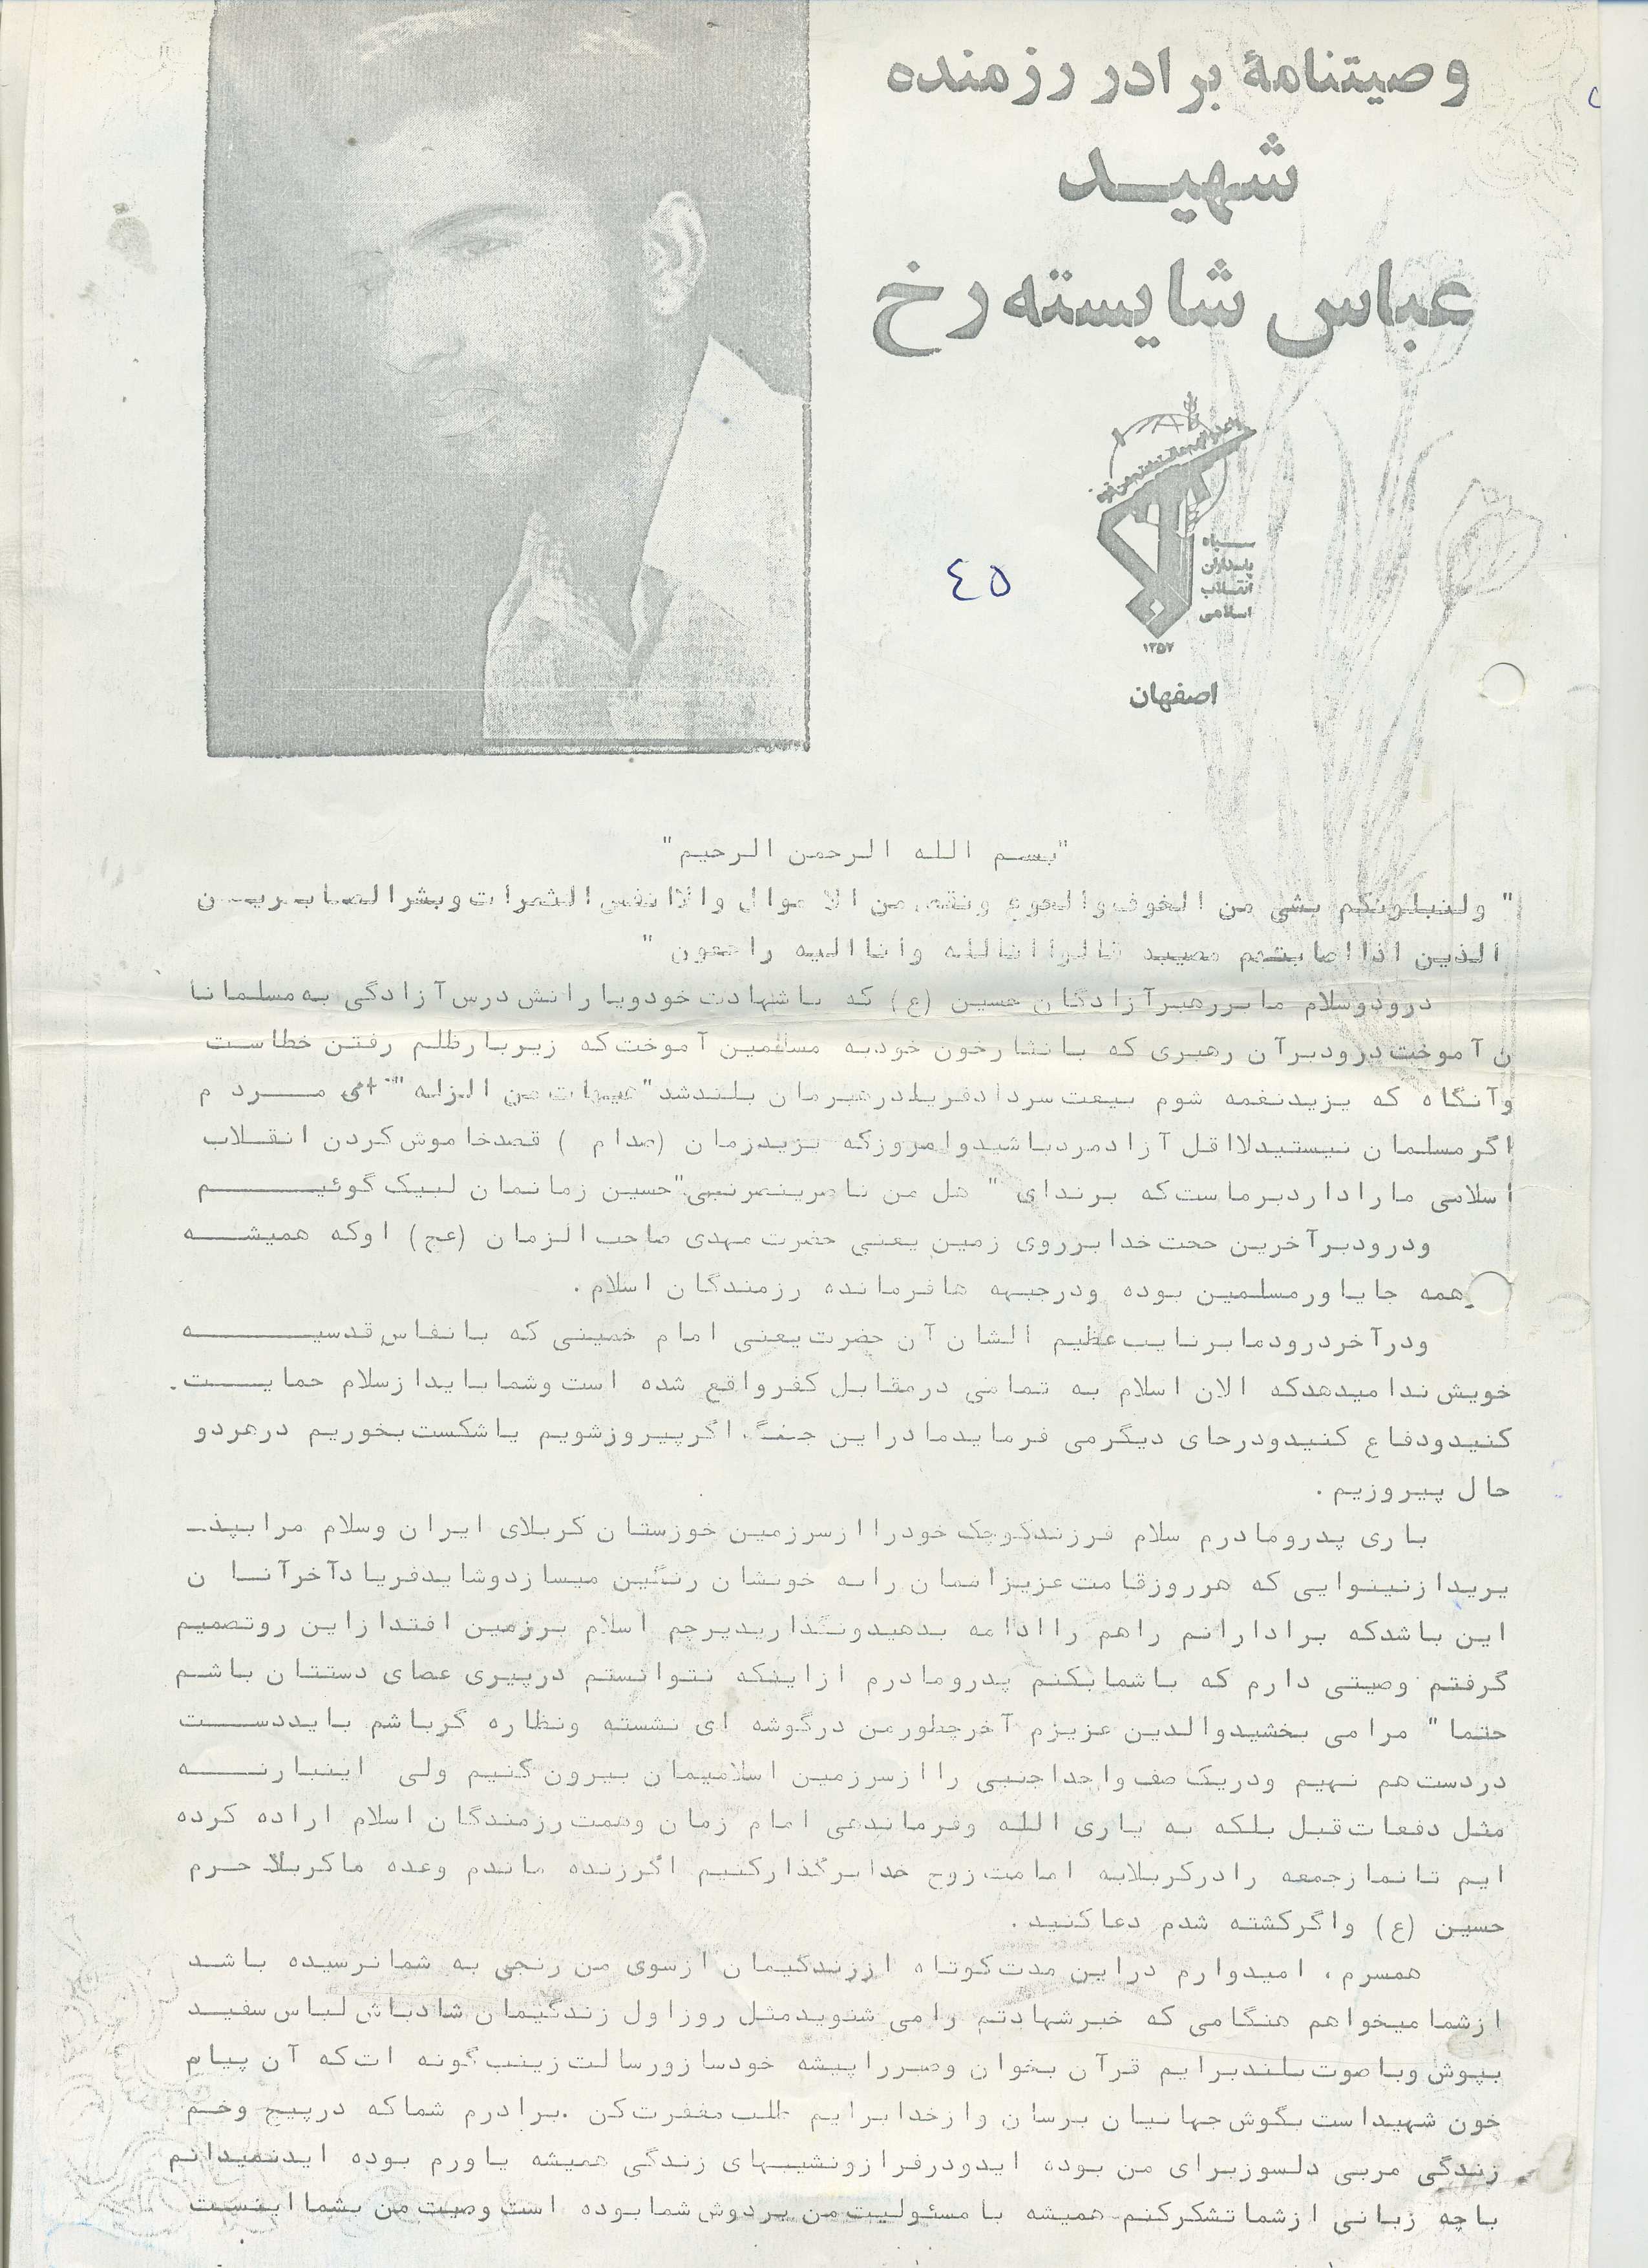 وصیتنامهٔ برادر رزمنده
شهید
عباس شایسته رخ
سپاه
پاسداران
انقلاب
اسلامی
۱۳۵۷
اصفهان
٤٥
"بسم الله الرحمن الرحیم"
" ولنبلونکم بشی من الخوف والجوع ونقص من الاموال والاانفس الثمرات وبشرالصابرین
الذین اذااصابتهم مصیبه قالوااناللــه واناالیه راجعون "
درودوسلام مابررهبرآزادگان حسین (ع) که باشهادت خودویارانش درس آزادگی به مسلمانا
ن آموخت درودبرآن رهبری که بانثارخون خودبه مسلمین آموخت که زیربارظلم رفتن خطاست
وآنگاه که یزیدنغمه شوم بیعت سردادفریادرهبرمان بلندشد"هیهات من الزله" ای مردم
اگرمسلمان نیستیدلااقل آزادمردباشیدوامروزکه یزیدزمان (صدام) قصدخاموش کردن انقلاب
اسلامی ماراداردبرماست که برندای " هل من ناصرینصرنیی"حسین زمانمان لبیک گوئیم
ودرودبرآخرین حجت خدابرروی زمین یعنی حضرت مهدی صاحب الزمان (عج) اوکه همیشه
همه جایاورمسلمین بوده ودرجبهه هافرمانده رزمندگان اسلام.
ودرآخردرودمابرنایب عظیم الشان آن حضرت یعنی امام خمینی که بانفاس قدسیه
خویش ندامیدهدکه الان اسلام به تمامی درمقابل کفرواقع شده است وشمابایدازسلام حمایت.
کنیدودفاع کنیدودرجای دیگرمی فرمایدمادراین جنگ اگرپیروزشویم یاشکست بخوریم درهردو
حال پیروزیم.
باری پدرومادرم سلام فرزندکوچک خودراازسرزمین خوزستان کربلای ایران وسلام مرابپذ
یریدازنینوایی که هرروزقامت عزیزانمان رابه خونشان رنگین میسازدوشایدفریادآخرآنان
این باشدکه برادارانم راهم راادامه بدهیدونگذاریدپرچم اسلام برزمین افتدازاین روتصمیم
گرفتم وصیتی دارم که باشمابکنم پدرومادرم ازاینکه نتوانستم درپیری عصای دستتان باشم
حتما" مرامی بخشیدوالدین عزیزم آخرچطورمن درگوشه ای نشسته ونظاره گرباشم بایددست
دردست هم نهیم ودریک صف واحداجنبی راازسرزمین اسلامیمان بیرون کنیم ولی اینبارنه
مثل دفعات قبل بلکه به یاری الله وفرماندهی امام زمان وهمت رزمندگان اسلام اراده کرده
ایم تانمازجمعه رادرکربلابه امامت روح خدابرگذارکنیم اگرزنده ماندم وعده ماکربلا حرم
حسین (ع) واگرکشته شدم دعاکنید.
همسرم، امیدوارم دراین مدت کوتاه اززندگیمان ازسوی من رنجی به شمانرسیده باشد
ازشمامیخواهم هنگامی که خبرشهادتم رامی شنویدمثل روزاول زندگیمان شادباش لباس سفید
بپوش وباصوت بلندبرایم قرآن بخوان وصبرراپیشه خودسازورسالت زینب گونه ات که آن پیام
خون شهیداست بگوش جهانیان برسان وازخدابرایم طلب مغفرت کن .برادرم شماکه درپیچ وخم
زندگی مربی دلسوزبرای من بوده ایدودرفرازونشیبهای زندگی همیشه یاورم بوده ایدنمیدانم
باچه زبانی ازشماتشکرکنم همیشه بامسئولیت من بردوش شمابوده است وصیت من بشمااینست